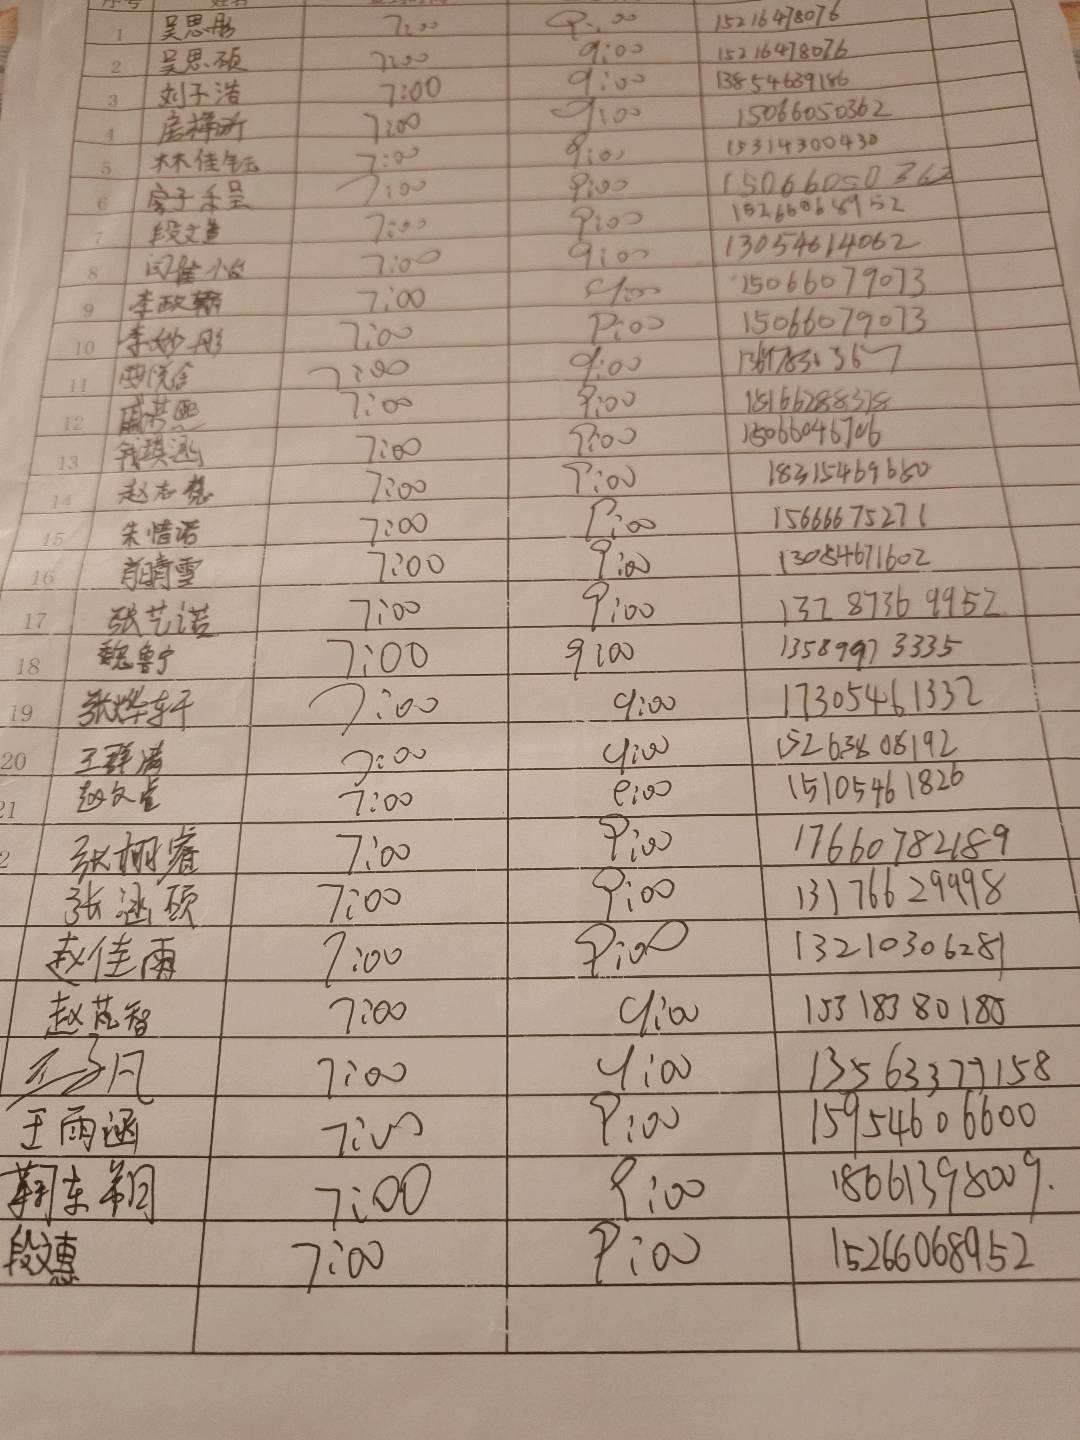 序号 姓名
1 吴思彤 7:00 9:00 15216478076
2 吴思硕 7:00 9:00 15216478076
3 刘子浩 7:00 9:00 13854639186
4 7:00 9:00 15066050362
5 林佳钰 7:00 9:00 15314300430
6 7:00 9:00 15066050362
7 段文 7:00 9:00 15266068952
8 闫佳怡 7:00 9:00 13054614062
9 李政翰 7:00 9:00 15066079073
10 李妙彤 7:00 9:00 15066079073
11 7:00 9:00
12 7:00 9:00 18166288318
13 7:00 9:00 15066046706
14 赵志 7:00 9:00 18315469660
15 朱惜诺 7:00 9:00 15666675271
16 肖晴雪 7:00 9:00 13054671602
17 张艺诺 7:00 9:00 13287369952
18 魏鲁宁 7:00 9:00 13589973335
19 张烨轩 7:00 9:00 17305461332
20 王群 7:00 9:00 15263808192
21 赵文 7:00 9:00 15105461826
2 张栩睿 7:00 9:00 17660782189
张涵硕 7:00 9:00 13176629998
赵佳雨 7:00 9:00 13210306281
赵芃智 7:00 9:00 15318380185
7:00 9:00 13563377158
王雨涵 7:00 9:00 15954606600
7:00 9:00 18661398009.
段文惠 7:00 9:00 15266068952